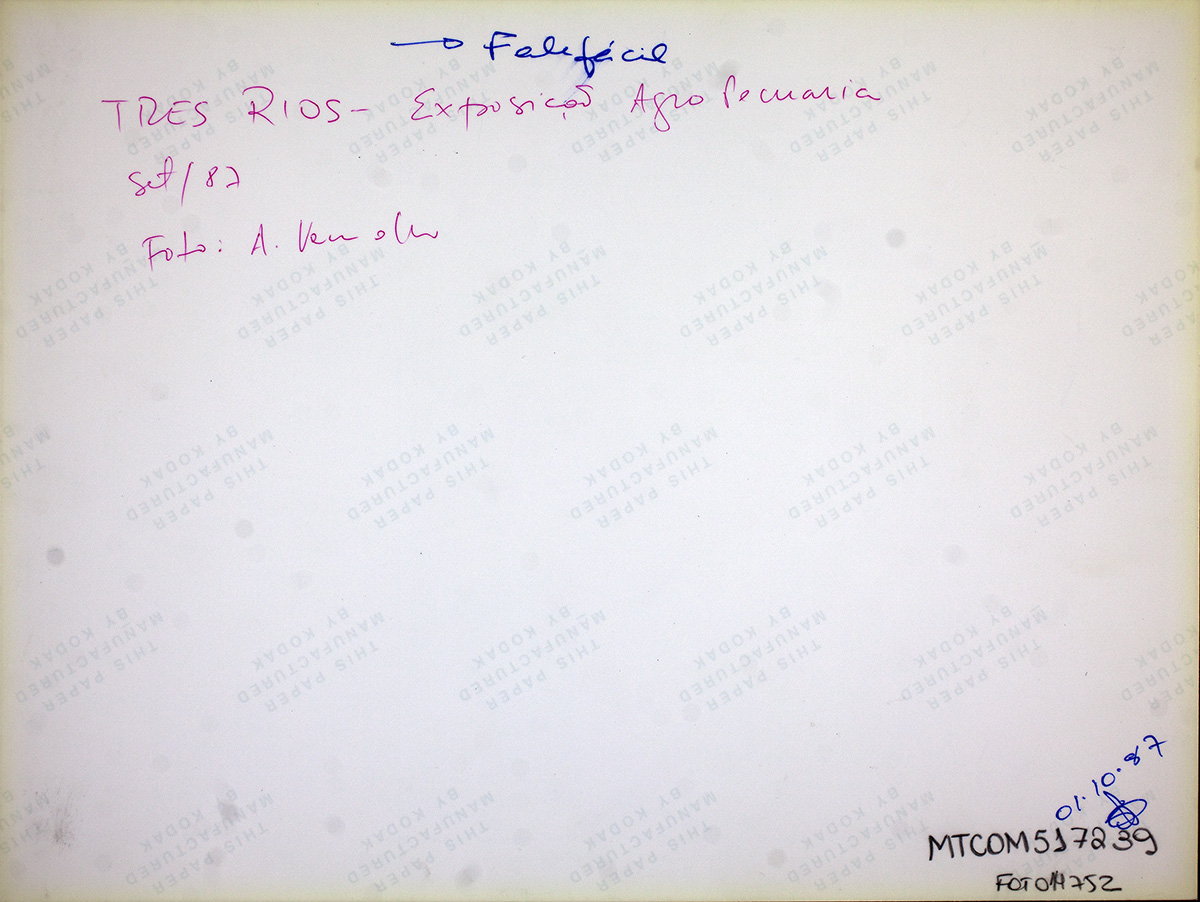 → Falefácil
TRES RIOS - Exposição Agro Pecuaria
set/87
Foto: A.
THIS PAPER
MANUFACTURED
BY KODAK
01.10.87
MTCOM517239